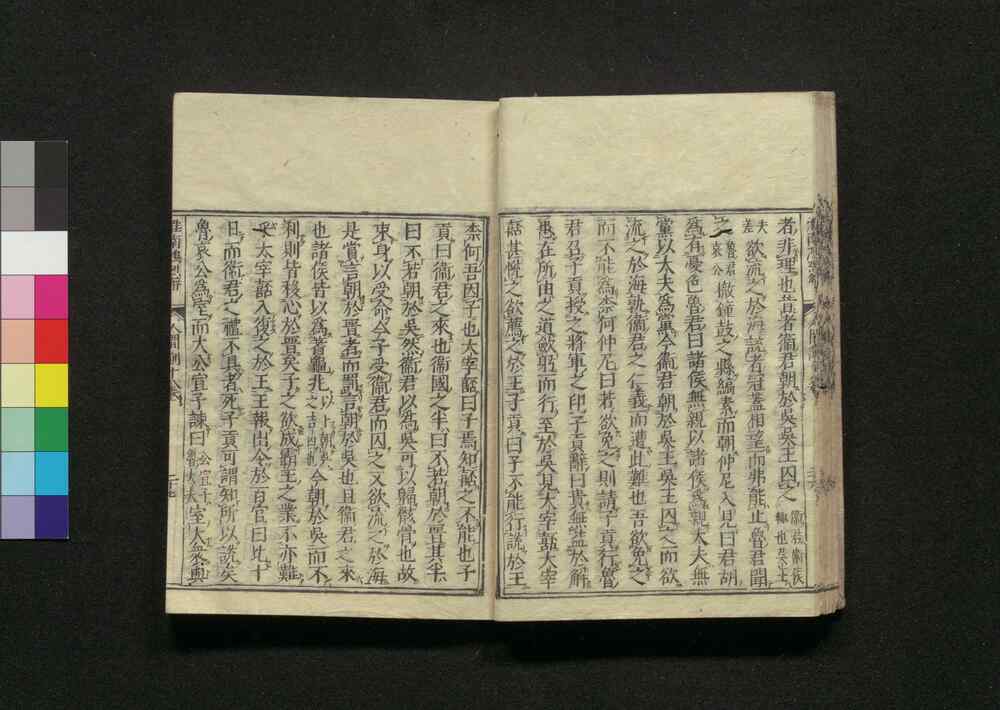 者非理也昔者衞君朝於吳吳王囚之衞君衞侯輒也吳王
夫差欲流之於海說者冠蓋相望而弗能止魯君聞
之魯君哀公撤鐘鼓之縣縞素而朝仲尼入見曰君胡
爲有憂色魯君曰諸侯無親以諸侯爲親大夫無
黨以大夫爲黨今衞君朝於吳王吳王囚之而欲
流之於海孰衞君之仁義而遭此難也吾欲免之
而不能爲柰何仲尼曰若欲免之則請子貢行魯
君召子貢授之將軍之印子貢辭曰貴無益於解
患在所由之道斂躬而行至於吳見太宰嚭太宰
嚭甚悅之欲薦之於王子貢曰子不能行說於王
柰何吾因子也太宰嚭曰子焉知嚭之不能也子
貢曰衞君之來也衞國之半曰不若朝於晉其半
曰不若朝於吳然衞君以爲吳可以歸骸骨也故
束身以受命今子受衞君而囚之又欲流之於海
是賞言朝於晉者而罰言朝於吳也且衞君之來
也諸侯皆以爲蓍龜兆之以卜朝吳之吉凶也今朝於吳而不
利則皆移心於晉矣子之欲成霸王之業不亦難
乎太宰嚭入復之於王王報出令於百官曰比十
日而衞君之禮不具者死子貢可謂知所以說矣
魯哀公爲室而大公宣子諫曰公宣子魯大夫室大衆與